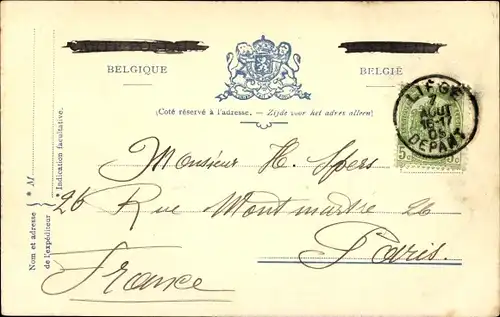 BELGIQUE BELGIË
(Coté réservé à l'adresse. – Zijde voor het adres alleen)
LIÉGE
7
AOUT
DÉPART
5c 5c
Monsieur H. Spers
26 Rue Montmartre 26
Paris.
France
* M
Indication facultative.
Nom et adresse
de l'expéditeur